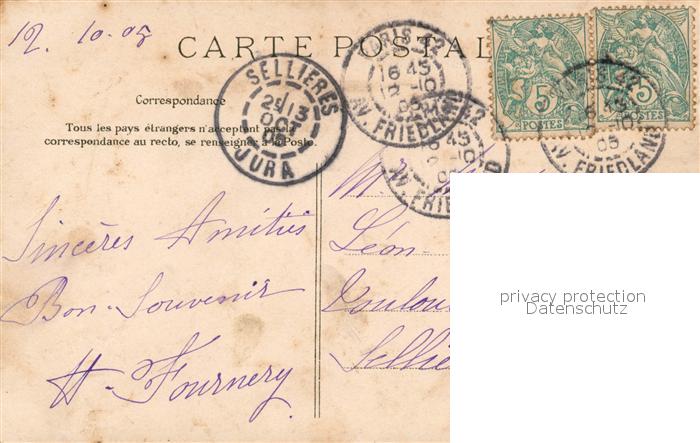 12. 10-05
CARTE POSTAL
Correspondance
Tous les pays étrangers n'acceptent pas la
correspondance au recto, se renseigner à la Poste.
SELLIERES
2E 13
OCT
05
JURA
PARIS 42
16 45
12-10
05
AV. FRIEDLAND
42
16 45
2-10
05
AV. FRIEDLAND
5
POSTES
5
POSTES
05
AV. FRIEDLAND
Sincères Amitiés
Bon Souvenir
H-Fournery
M.
Léon
Toulous
Selliè
privacy protection
Datenschutz